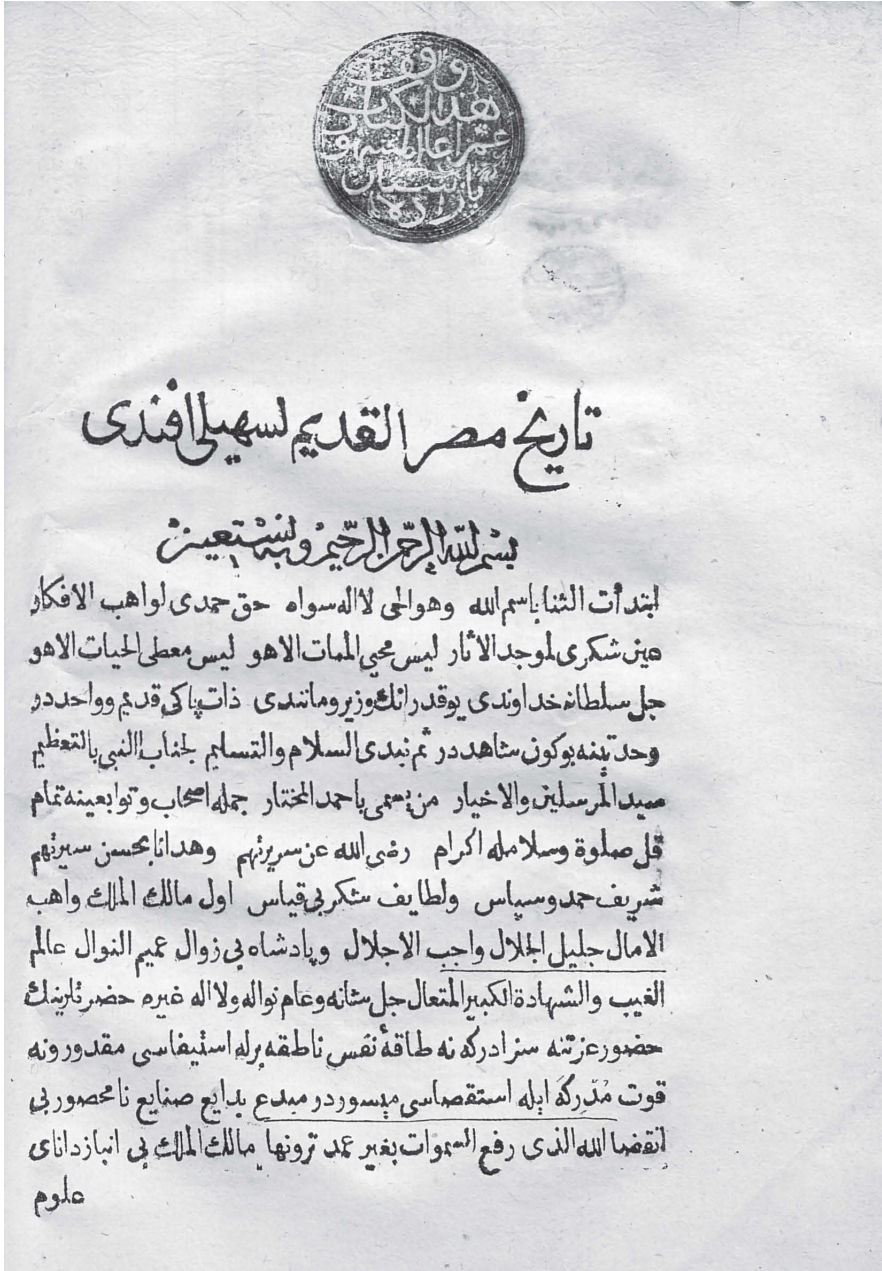 وقف
هذا الكتاب
تاريخ مصر القديم لسهيلى افندى
بسم الله الرحمن الرحيم وبه نستعين
ابتدأت الثنا باسم الله وهو الحى لا اله سواه حق حمدى لواهب الافكار
عين شكرى لموجد الاثار ليس محيي الممات الا هو ليس معطى الحيات الا هو
جل سلطانه خداوندى يوقدر انك وزير ومانندى ذات پاكى قديم وواحد در
وحدتينه بوكون شاهد در ثم نبدى السلام والتسليم لجناب النبي بالتعظيم
سيد المرسلين والاخيار من يسمى باحمد المختار جمله اصحاب وتوابعينه تمام
قل صلوة وسلامله اكرام رضى الله عن سريرتهم وهدانا بحسن سيرتهم
شريف حمد وسپاس ولطايف شكر بى قياس اول مالك الملك واهب
الامال جليل الجلال واجب الاجلال وپادشاه بى زوال عميم النوال عالم
الغيب والشهادة الكبير المتعال جل شانه وعام نواله ولا اله غيره حضرتلرينك
حضور عزتنه سزادر كه نه طاقۀ نفس ناطقه برله استيفاسى مقدور ونه
قوت مُدْرِكَه ايله استقصاسى ميسور در مبدع بدايع صنايع نامحصور بى
انقضا الله الذى رفع السموات بغير عمد ترونها مالك الملك بى انباز داناى
علوم